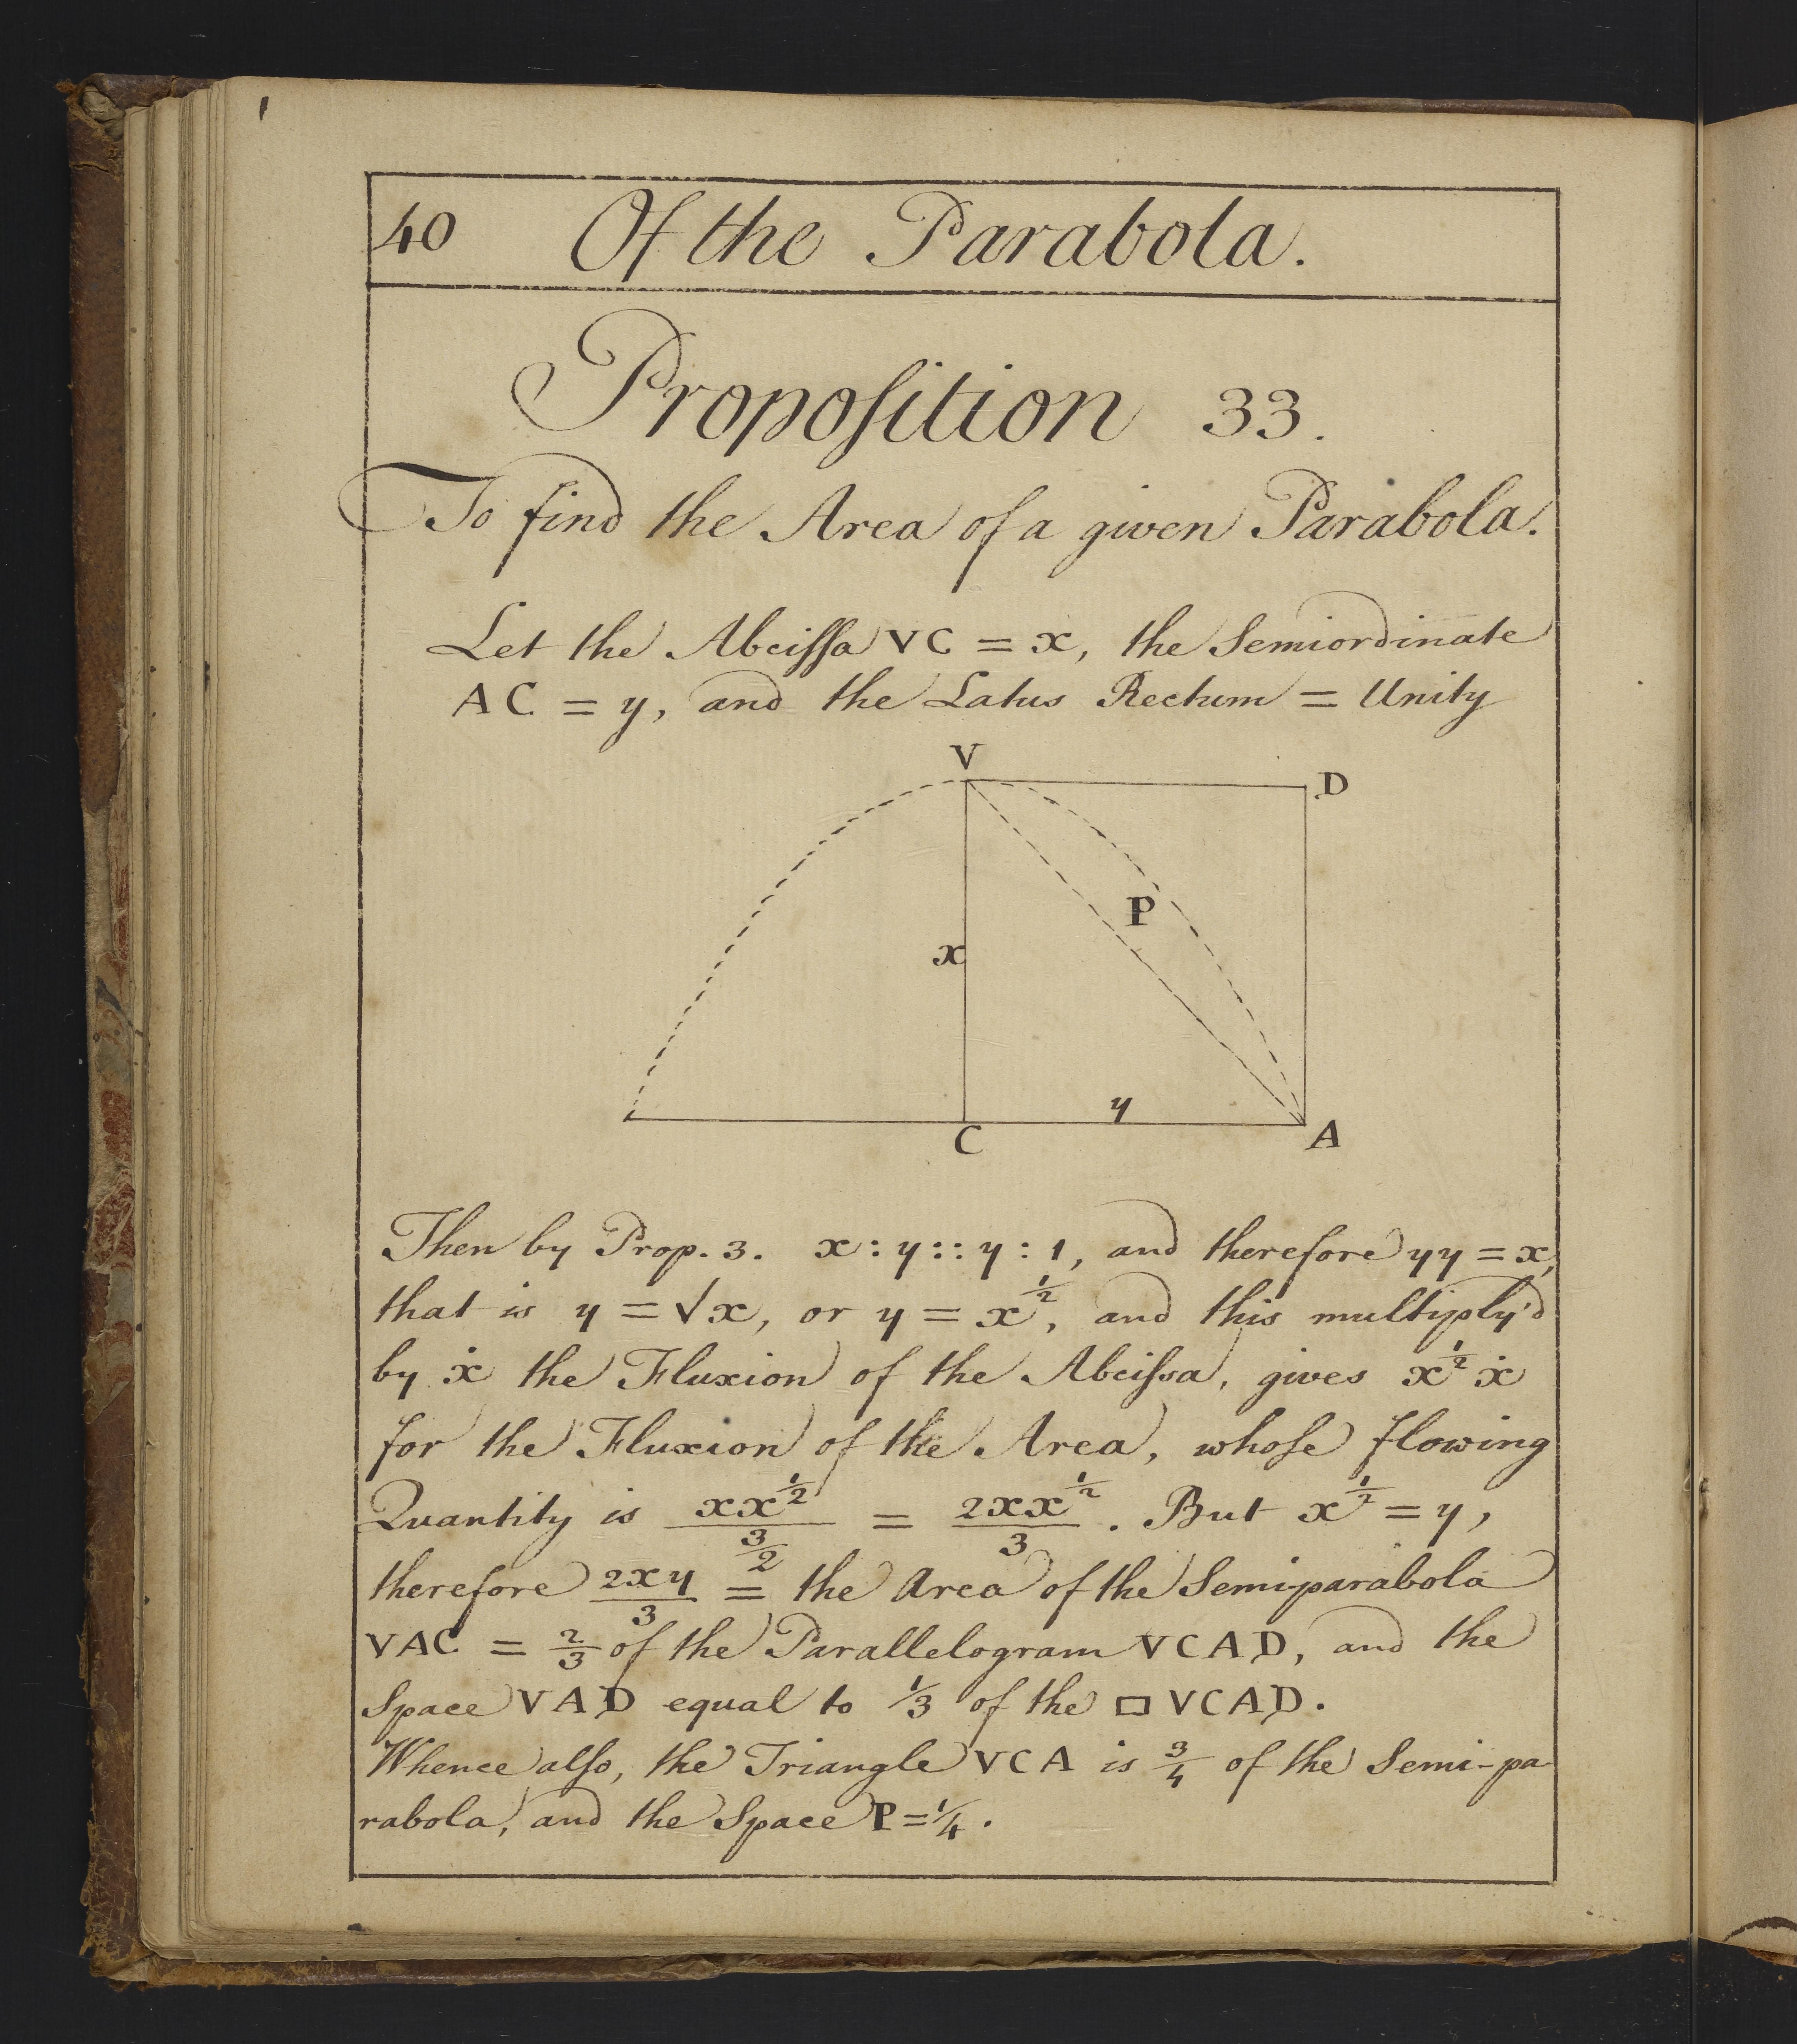 40 Of the Parabola.
Propoſition 33.
To find the Area of a given Parabola.
Let the Abciſſa VC = x, the Semiordinate
AC = y, and the Latus Rectum = Unity
V
D
P
x
y
C
A
Then by Prop. 3. x : y :: y : 1, and therefore yy = x,
that is y = √x, or y = x^½, and this multiply'd
by ẋ the Fluxion of the Abciſsa, gives x^½ ẋ
for the Fluxion of the Area, whoſe flowing
Quantity is xx^½/(3/2) = 2xx^½/3. But x^½ = y,
therefore 2xy/3 = the Area of the Semiparabola
VAC = 2/3 of the Parallelogram VCAD, and the
Space VAD equal to 1/3 of the ▭ VCAD.
Whence alſo, the Triangle VCA is 3/4 of the Semi-pa-
rabola, and the Space P = 1/4.